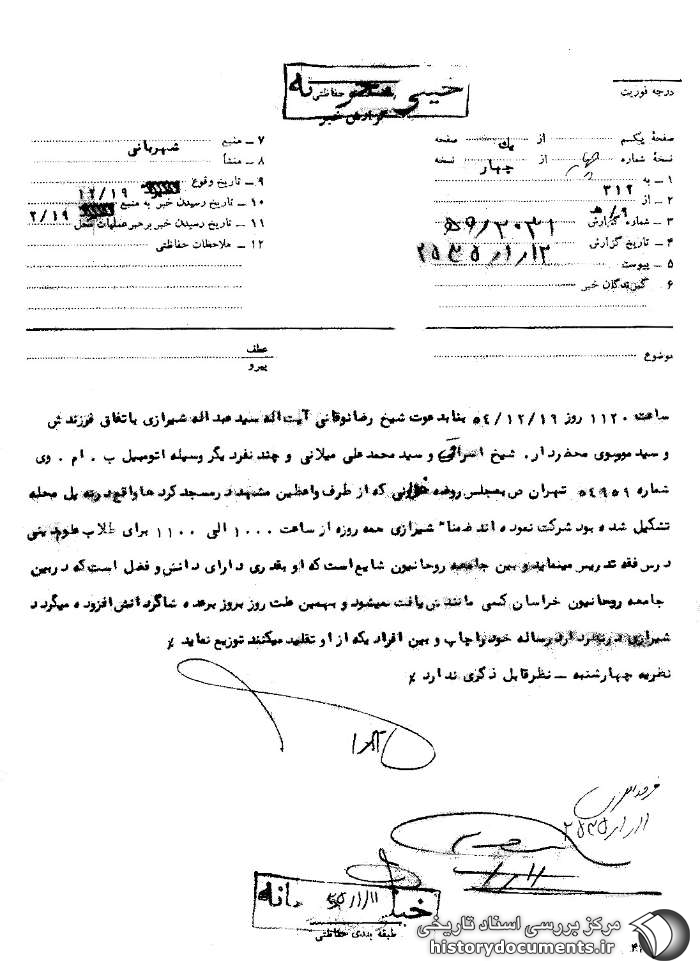 خیلی محرمانه
حفاظتی
گزارش خبر
درجه فوریت
صفحهٔ یکم از یک صفحه
نسخهٔ شماره چهار از چهار نسخه
۱ - به
۲ - از ۳۱۲
۳ - شماره گزارش
۴ - تاریخ گزارش ۲۵۳۵/۱/۱۲
۵ - پیوست
۶ - گیرندگان خبر
۷ - منبع شهربانی
۸ - منشأ
۹ - تاریخ وقوع ۱۲/۱۹
۱۰ - تاریخ رسیدن خبر به منبع
۱۱ - تاریخ رسیدن خبر برهبر عملیات محل
۱۲ - ملاحظات حفاظتی
موضوع
عطف
پیرو
ساعت ۱۱۲۰ روز ۵۴/۱۲/۱۹ بنا بدعوت شیخ رضا نوقانی آیت اله سید عبداله شیرازی باتفاق فرزندش
و سید موسوی محضردار، شیخ اشراقی و سید محمدعلی میلانی و چند نفر دیگر وسیله اتومبیل ب . ام . وی
شماره ۵۴۹۵۹ تهران ص بمجلس روضه خوانی که از طرف واعظین مشهد در مسجد کردها واقع در ته پل محله
تشکیل شده بود شرکت نموده اند ضمنا" شیرازی همه روزه از ساعت ۱۰۰۰ الی ۱۱۰۰ برای طلاب علوم دینی
درس فقه تدریس مینماید و بین جامعه روحانیون شایع است که او بقدری دارای دانش و فضل است که در بین
جامعه روحانیون خراسان کسی مانندش یافت نمیشود و بهمین علت روز بروز برعده شاگردانش افزوده میگردد
شیرازی در نظر دارد رساله خود را چاپ و بین افرادیکه از او تقلید میکنند توزیع نماید ٪
نظریه چهارشنبه - نظر قابل ذکری ندارد ٪
۲۵۳۵/۱/۱۱
۱/۱۱
۳۵/۱/۱۱
طبقه بندی حفاظتی
مرکز بررسی اسناد تاریخی
historydocuments.ir